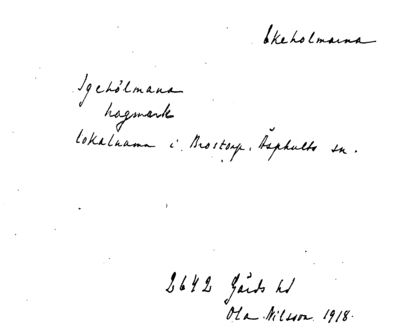 Ekeholmarna
Igehólmana
hagmark
lokalnamn i Brostorp, Äsphults sn.
2642 Gärds hd
Ola Nilsson 1918.